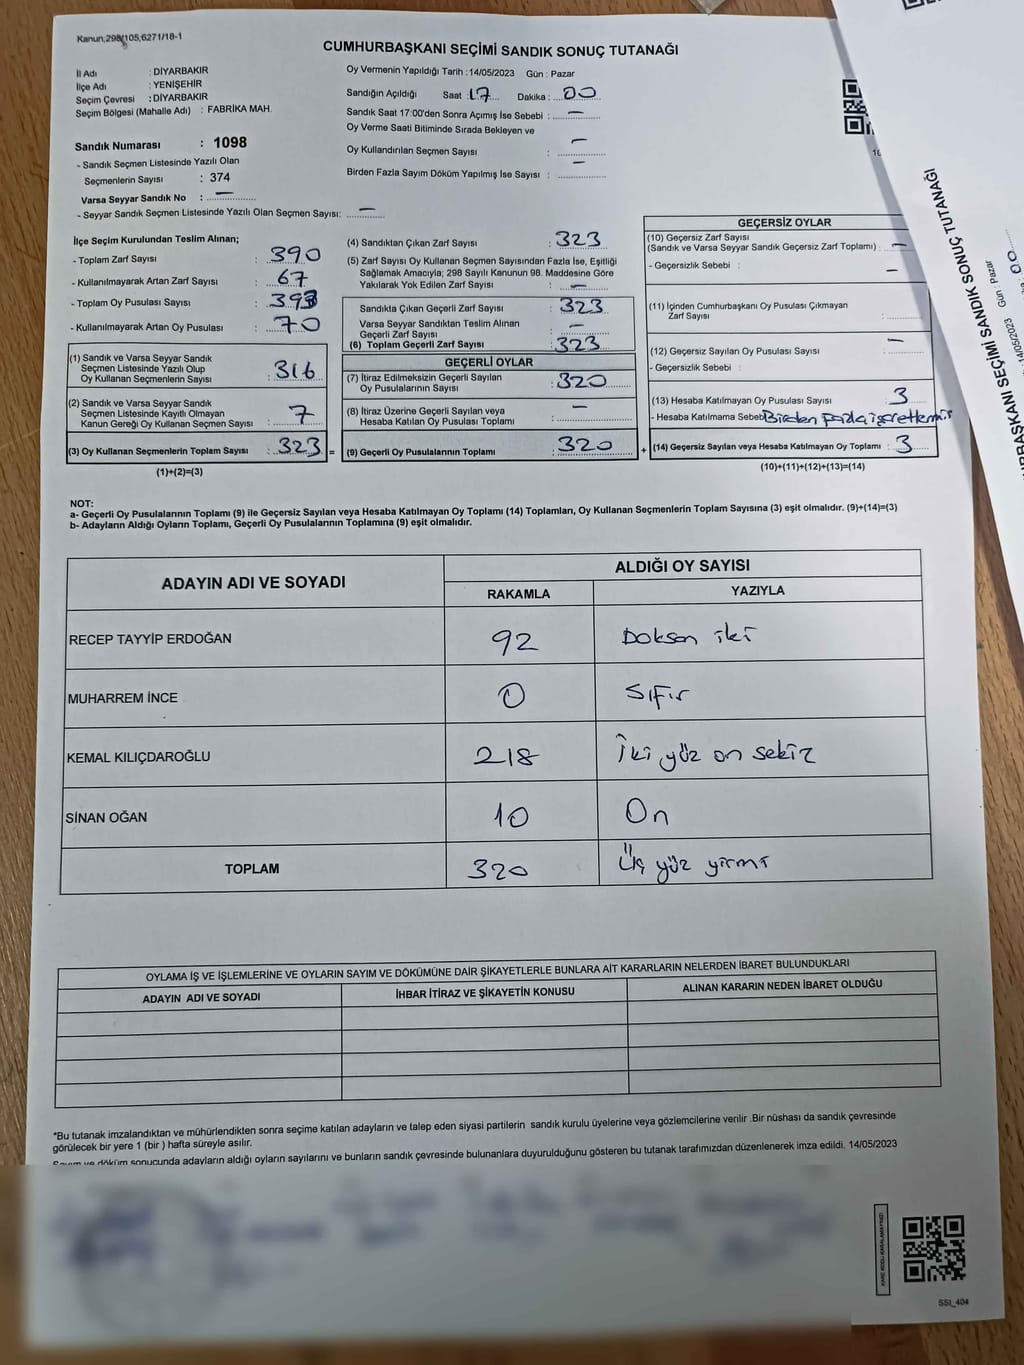 Kanun;298/105,6271/18-1
CUMHURBAŞKANI SEÇİMİ SANDIK SONUÇ TUTANAĞI
İl Adı : DİYARBAKIR
İlçe Adı : YENİŞEHİR
Seçim Çevresi : DİYARBAKIR
Seçim Bölgesi (Mahalle Adı) : FABRİKA MAH.
Sandık Numarası : 1098
- Sandık Seçmen Listesinde Yazılı Olan
Seçmenlerin Sayısı : 374
Varsa Seyyar Sandık No : —
- Seyyar Sandık Seçmen Listesinde Yazılı Olan Seçmen Sayısı: —
Oy Vermenin Yapıldığı Tarih :14/05/2023 Gün : Pazar
Sandığın Açıldığı Saat : 17 Dakika : 00
Sandık Saat 17:00'den Sonra Açımış İse Sebebi : —
Oy Verme Saati Bitiminde Sırada Bekleyen ve
Oy Kullandırılan Seçmen Sayısı : —
Birden Fazla Sayım Döküm Yapılmış İse Sayısı : —
İlçe Seçim Kurulundan Teslim Alınan;
- Toplam Zarf Sayısı : 390
- Kullanılmayarak Artan Zarf Sayısı : 67
- Toplam Oy Pusulası Sayısı : 393
- Kullanılmayarak Artan Oy Pusulası : 70
(1) Sandık ve Varsa Seyyar Sandık
Seçmen Listesinde Yazılı Olup
Oy Kullanan Seçmenlerin Sayısı : 316
(2) Sandık ve Varsa Seyyar Sandık
Seçmen Listesinde Kayıtlı Olmayan
Kanun Gereği Oy Kullanan Seçmen Sayısı : 7
(3) Oy Kullanan Seçmenlerin Toplam Sayısı : 323 =
(1)+(2)=(3)
(4) Sandıktan Çıkan Zarf Sayısı : 323
(5) Zarf Sayısı Oy Kullanan Seçmen Sayısından Fazla İse, Eşitliği
Sağlamak Amacıyla; 298 Sayılı Kanunun 98. Maddesine Göre
Yakılarak Yok Edilen Zarf Sayısı : —
Sandıkta Çıkan Geçerli Zarf Sayısı : 323
Varsa Seyyar Sandıktan Teslim Alınan
Geçerli Zarf Sayısı : —
(6) Toplam Geçerli Zarf Sayısı : 323
GEÇERLİ OYLAR
(7) İtiraz Edilmeksizin Geçerli Sayılan
Oy Pusulalarının Sayısı : 320
(8) İtiraz Üzerine Geçerli Sayılan veya
Hesaba Katılan Oy Pusulası Toplamı : —
(9) Geçerli Oy Pusulalarının Toplamı : 320 +
GEÇERSİZ OYLAR
(10) Geçersiz Zarf Sayısı
(Sandık ve Varsa Seyyar Sandık Geçersiz Zarf Toplamı) : —
- Geçersizlik Sebebi : —
(11) İçinden Cumhurbaşkanı Oy Pusulası Çıkmayan
Zarf Sayısı :
(12) Geçersiz Sayılan Oy Pusulası Sayısı : —
- Geçersizlik Sebebi :
(13) Hesaba Katılmayan Oy Pusulası Sayısı : 3
- Hesaba Katılmama Sebebi Birden fazla işaretlemir
(14) Geçersiz Sayılan veya Hesaba Katılmayan Oy Toplamı : 3
(10)+(11)+(12)+(13)=(14)
NOT:
a- Geçerli Oy Pusulalarının Toplamı (9) ile Geçersiz Sayılan veya Hesaba Katılmayan Oy Toplamı (14) Toplamları, Oy Kullanan Seçmenlerin Toplam Sayısına (3) eşit olmalıdır. (9)+(14)=(3)
b- Adayların Aldığı Oyların Toplamı, Geçerli Oy Pusulalarının Toplamına (9) eşit olmalıdır.
ADAYIN ADI VE SOYADI ALDIĞI OY SAYISI
RAKAMLA YAZIYLA
RECEP TAYYİP ERDOĞAN 92 Doksan iki
MUHARREM İNCE 0 Sıfır
KEMAL KILIÇDAROĞLU 218 İki yüz on sekiz
SİNAN OĞAN 10 On
TOPLAM 320 Üç yüz yirmi
OYLAMA İŞ VE İŞLEMLERİNE VE OYLARIN SAYIM VE DÖKÜMÜNE DAİR ŞİKAYETLERLE BUNLARA AİT KARARLARIN NELERDEN İBARET BULUNDUKLARI
ADAYIN ADI VE SOYADI İHBAR İTİRAZ VE ŞİKAYETİN KONUSU ALINAN KARARIN NEDEN İBARET OLDUĞU
*Bu tutanak imzalandıktan ve mühürlendikten sonra seçime katılan adayların ve talep eden siyasi partilerin sandık kurulu üyelerine veya gözlemcilerine verilir .Bir nüshası da sandık çevresinde
görülecek bir yere 1 (bir ) hafta süreyle asılır.
Sayım ve döküm sonucunda adayların aldığı oyların sayılarını ve bunların sandık çevresinde bulunanlara duyurulduğunu gösteren bu tutanak tarafımızdan düzenlenerek imza edildi. 14/05/2023
KARE KODU KARALAMAYINIZ!
SSI_404
URBAŞKANI SEÇİMİ SANDIK SONUÇ TUTANAĞI
14/05/2023 Gün : Pazar
00